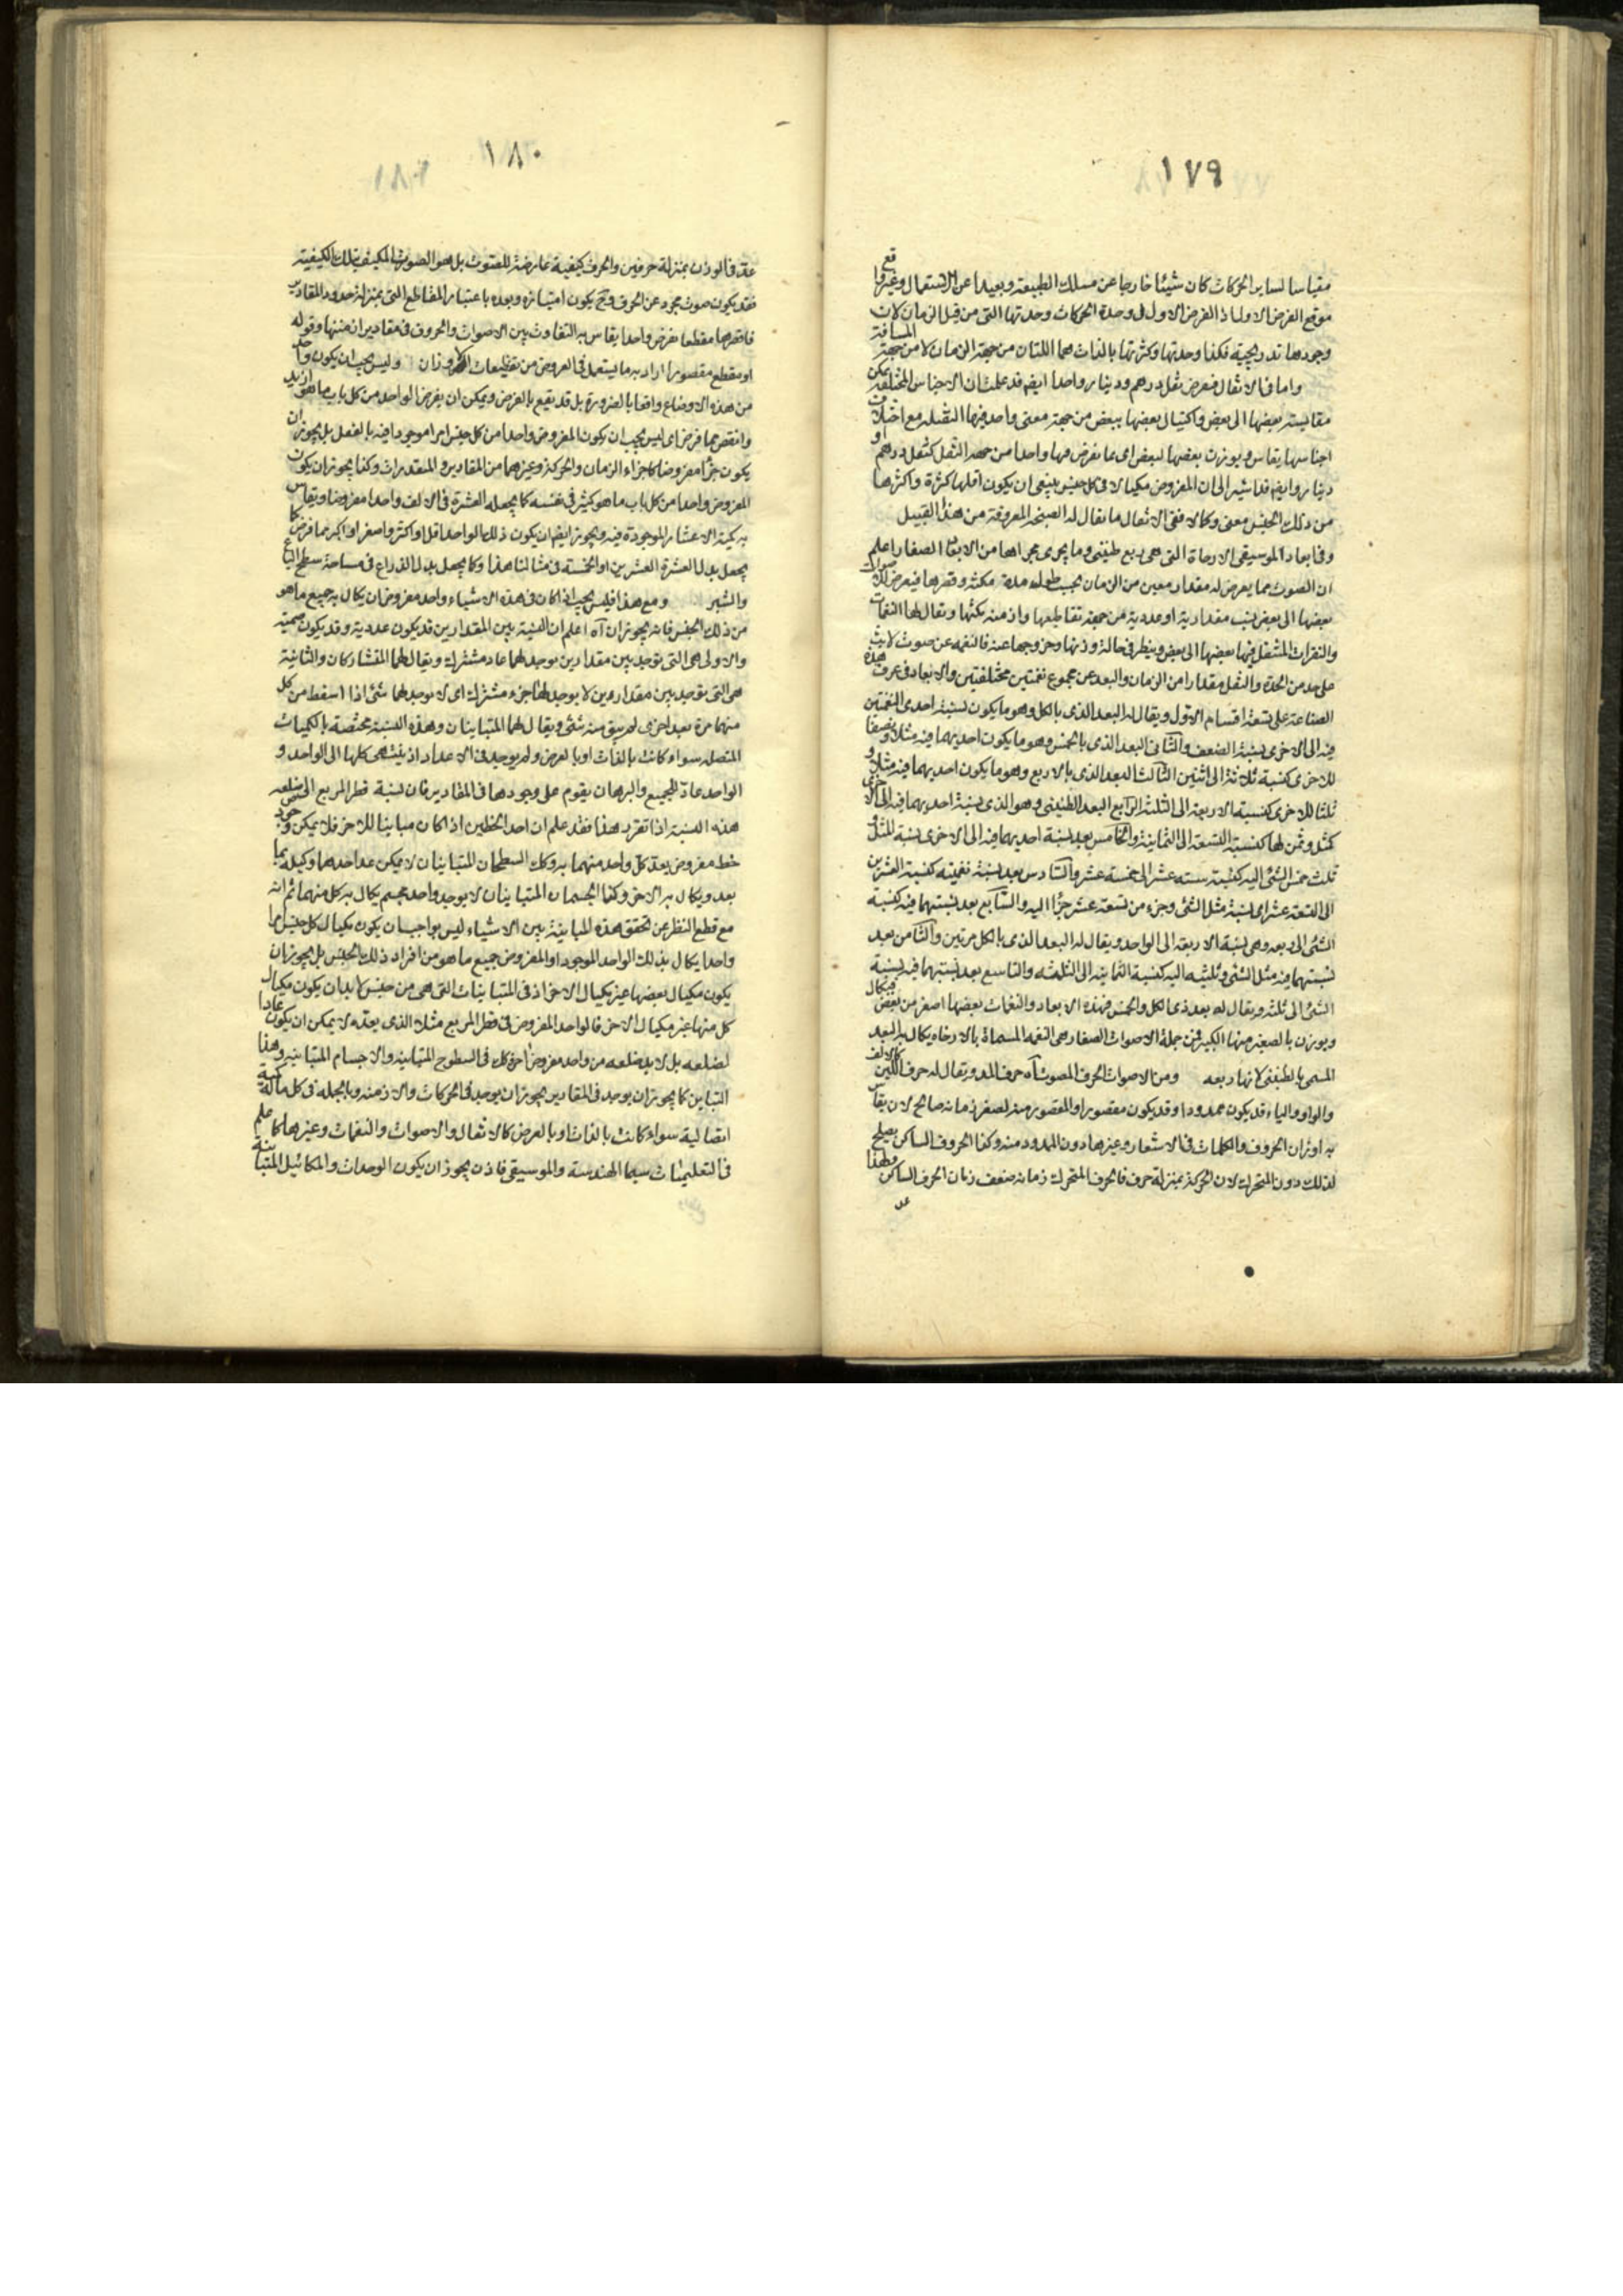 ١٧٩
مقياسا لساير الحركات كان شيئا خارجا عن مسلك الطبيعة وبعيدا عن الاستعمال وغير واقع
موقع الفرض الاول اذ الفرض الاول فى وحدة الحركات وحدتها التى من قبل الزمان لان
وجودها تدريجية فكذا وحدتها وكثرتها بالذات هما اللتان من جهة الزمان لا من جهة المسافة
واما فى الاثقال فنفرض ثقل درهم ودينار واحدا ايضا قد علمت ان الاجناس المختلفة يمكن
مقايسة بعضها الى بعض واكتيال بعضها ببعض من جهة معنى واحد فيها الثقيله مع اختلاف
اجناسها يقاس ويوزن بعضها لبعض اى بما نفرض فيها واحدا من جهة الثقل كثقل درهم او
دينار وايضا قد اشير الى ان المفروض مكيالا فى كل جنس ينبغى ان يكون اقلها كثرة واكثرها
من ذلك الجنس معنى وكالا ففى الاثقال ما يقال له الصنجة المعروفة من هذا القبيل
وفى ابعاد الموسيقى الارخاة التى هى ربع طنينى وما يجرى مجراها من الابعاد الصغار اعلم
ان الصوت مما يعرض له مقدار معين من الزمان بحسب طول مدة مكثه وقصرها فيعرض للاصوات
بعضها الى بعض نسب مقدارية او عددية من جهة تقاطيعها وازمنة مكثها ويقال لها النغمات
والنقرات المشتغل فيها بعضها الى بعض وينظر فى حالة وزنها وخروجها عنه فالنغمه عن صوت لابث
على حد من الحدة والثقل مقدارا من الزمان والبعد عن مجموع نغمتين مختلفتين والابعاد فى عرف هذه
الصناعة على تسعة اقسام الاول ويقال له البعد الذى بالكل وهو ما يكون نسبة احدى النغمتين
فيه الى الاخرى نسبة الضعف والثانى البعد الذى بالخمس وهو ما يكون احديهما فيه مثلا ونصفا
للاخرى كنسبة ثلاثة الى اثنين الثالث البعد الذى بالاربع وهو ما يكون احديهما فيه مثلا و
ثلثا للاخرى كنسبة الاربعة الى الثلثة الرابع البعد الطنينى وهو الذى نسبة احديهما فيه الى الاخرى
كمثل وثمن لها كنسبة التسعة الى الثمانية والخامس بعد نسبة احديهما فيه الى الاخرى نسبة المثل و
ثلث خمس الشئ اليه كنسبة سته عشر الى خمسة عشر والسادس بعد نسبة نغمتيه كنسبة العشرين
الى التسعة عشر اى نسبة مثل الشئ وجزء من تسعة عشر جزأ اليه والسابع بعد نسبتهما فيه كنسبة
الشئ الى ربعه وهى نسبة الاربعة الى الواحد ويقال له البعد الذى بالكل مرتين والثامن بعد
نسبتهما فيه مثل الشئ وثلثيه اليه كنسبة الثمانية الى الثلثة والتاسع بعد نسبتهما فيه نسبة
الشئ الى ثلثه ويقال له بعد ذى الكل والخمس فهذه الابعاد والنغمات بعضها اصغر من بعض فيكال
ويوزن بالصغير منها الكبير فمن جملة الاصوات الصغار هى النغمه المسماة بالارخاه يكال به البعد
المسمى بالطنينى لانها ربعه ومن الاصوات الحرف المصوت آه حرف المد ويقال له حرف اللين كالالف
والواو والياء قد يكون ممدودا وقد يكون مقصورا والمقصور منه لصغر زمانه صالح لان يقاس
به اوزان الحروف والكلمات فى الاشعار وغيرها دون الممدود منه وكذا الحروف الساكن يصلح
لذلك دون المتحرك لان الحركة بمنزلة حرف فالحرف المتحرك زمانه ضعف زمان الحرف الساكن ولهذا
عد
١٨٠
عد فى الوزن بمنزلة حرفين والحرف كيفية عارضة للصوت بل هو الصوت المكيف بتلك الكيفية
فقد يكون صوت مجرد عن الحرف وح يكون امتيازه وبعده باعتبار المقاطع التى بمنزلة حدود المقادير
فاقصرها مقطعا نفرض واحدا يقاس به التفاوت بين الاصوات والحروف فى مقادير ازمنتها وقوله
او مقطع مقصور اراد به ما يستعمل فى العروض من تقطيعات الاوزان وليس يجب ان يكون واحد
من هذه الاوضاع واقعا بالضرورة بل قد يقع بالفرض ويمكن ان يفرض الواحد من كل باب ما هو ازيد
وانقص مما فرض اى ليس يجب ان يكون المفروض واحدا من كل جنس امرا موجودا فيه بالفعل بل يجوز ان
يكون جزأ مفروضا كاجزاء الزمان والحركة وغيرهما من المقادير والمتقدرات وكذا يجوز ان يكون
المفروض واحدا من كل باب ما هو كثير فى نفسه كما يجعل العشرة فى الالف واحدا مفروضا ويقاس
به كمية الاعشار الموجودة فيه ويجوز ايضا ان يكون ذلك الواحد اقل او اكثر واصغر او اكبر مما فرض كما
يجعل بدل العشرة العشرين او الخمسة فى مثالنا هذا وكما يجعل بدل الذراع فى مساحة سطح الباع
والشبر ومع هذا فليس يجب اذا كان فى هذه الاشياء واحد مفروض ان يكال به جميع ما هو
من ذلك الجنس فانه يجوز ان آه اعلم ان النسبة بين المقدارين قد يكون عددية وقد يكون صمية
والاولى هى التى توجد بين مقدارين يوجد لهما عاد مشترك ويقال لهما المتشاركان والثانية
هى التى توجد بين مقدارين لا يوجد لهما جزء مشترك اى لا يوجد لهما شئ اذا اسقط من كل
منهما مرة بعد اخرى لم يبق منه شئ ويقال لهما المتباينان وهذه النسبة مختصة بالكميات
المتصله سواء كانت بالذات او بالعرض ولم يوجد فى الاعداد اذ ينتهى كلها الى الواحد و
الواحد عاد للجميع والبرهان يقوم على وجودها فى المقادير فان نسبة قطر المربع الى ضلعه
هذه النسبة اذا تقرر هذا فقد علم ان احد الخطين اذا كان مباينا للاخر فلا يمكن وجود
خط مفروض يعد كل واحد منهما به وكك السطحان المتباينان لا يمكن عد احدهما وكيله بما
يعد ويكال به الاخر وكذا الجسمان المتباينان لا يوجد واحد مجسم يكال به كل منهما ثم انه
مع قطع النظر عن تحقق هذه المباينة بين الاشياء ليس بواجب ان يكون مكيال كل جنس امرا
واحدا يكال بذلك الواحد الموجود او المفروض جميع ما هو من افراد ذلك الجنس بل يجوز ان
يكون مكيال بعضها غير مكيال الاخر اذ فى المتباينات التى هى من جنس لابد ان يكون مكيال
كل منها غير مكيال الاخر فالواحد المفروض فى قطر المربع مثلا الذى يعده لا يمكن ان يكون عادا
لضلعه بل لابد لضلعه من واحد مفروض اخر وكك فى السطوح المتباينه والاجسام المتباينه وهذا
التباين كما يجوز ان يوجد فى المقادير يجوز ان يوجد فى الحركات والازمنه وبالجمله فى كل ما له كمية
اتصالية سواء كانت بالذات او بالعرض كالاثقال والاصوات والنغمات وغيرها كما علم
فى التعليميات سيما الهندسة والموسيقى فاذن يجوز ان يكون الوحدات والمكائيل المتباينة